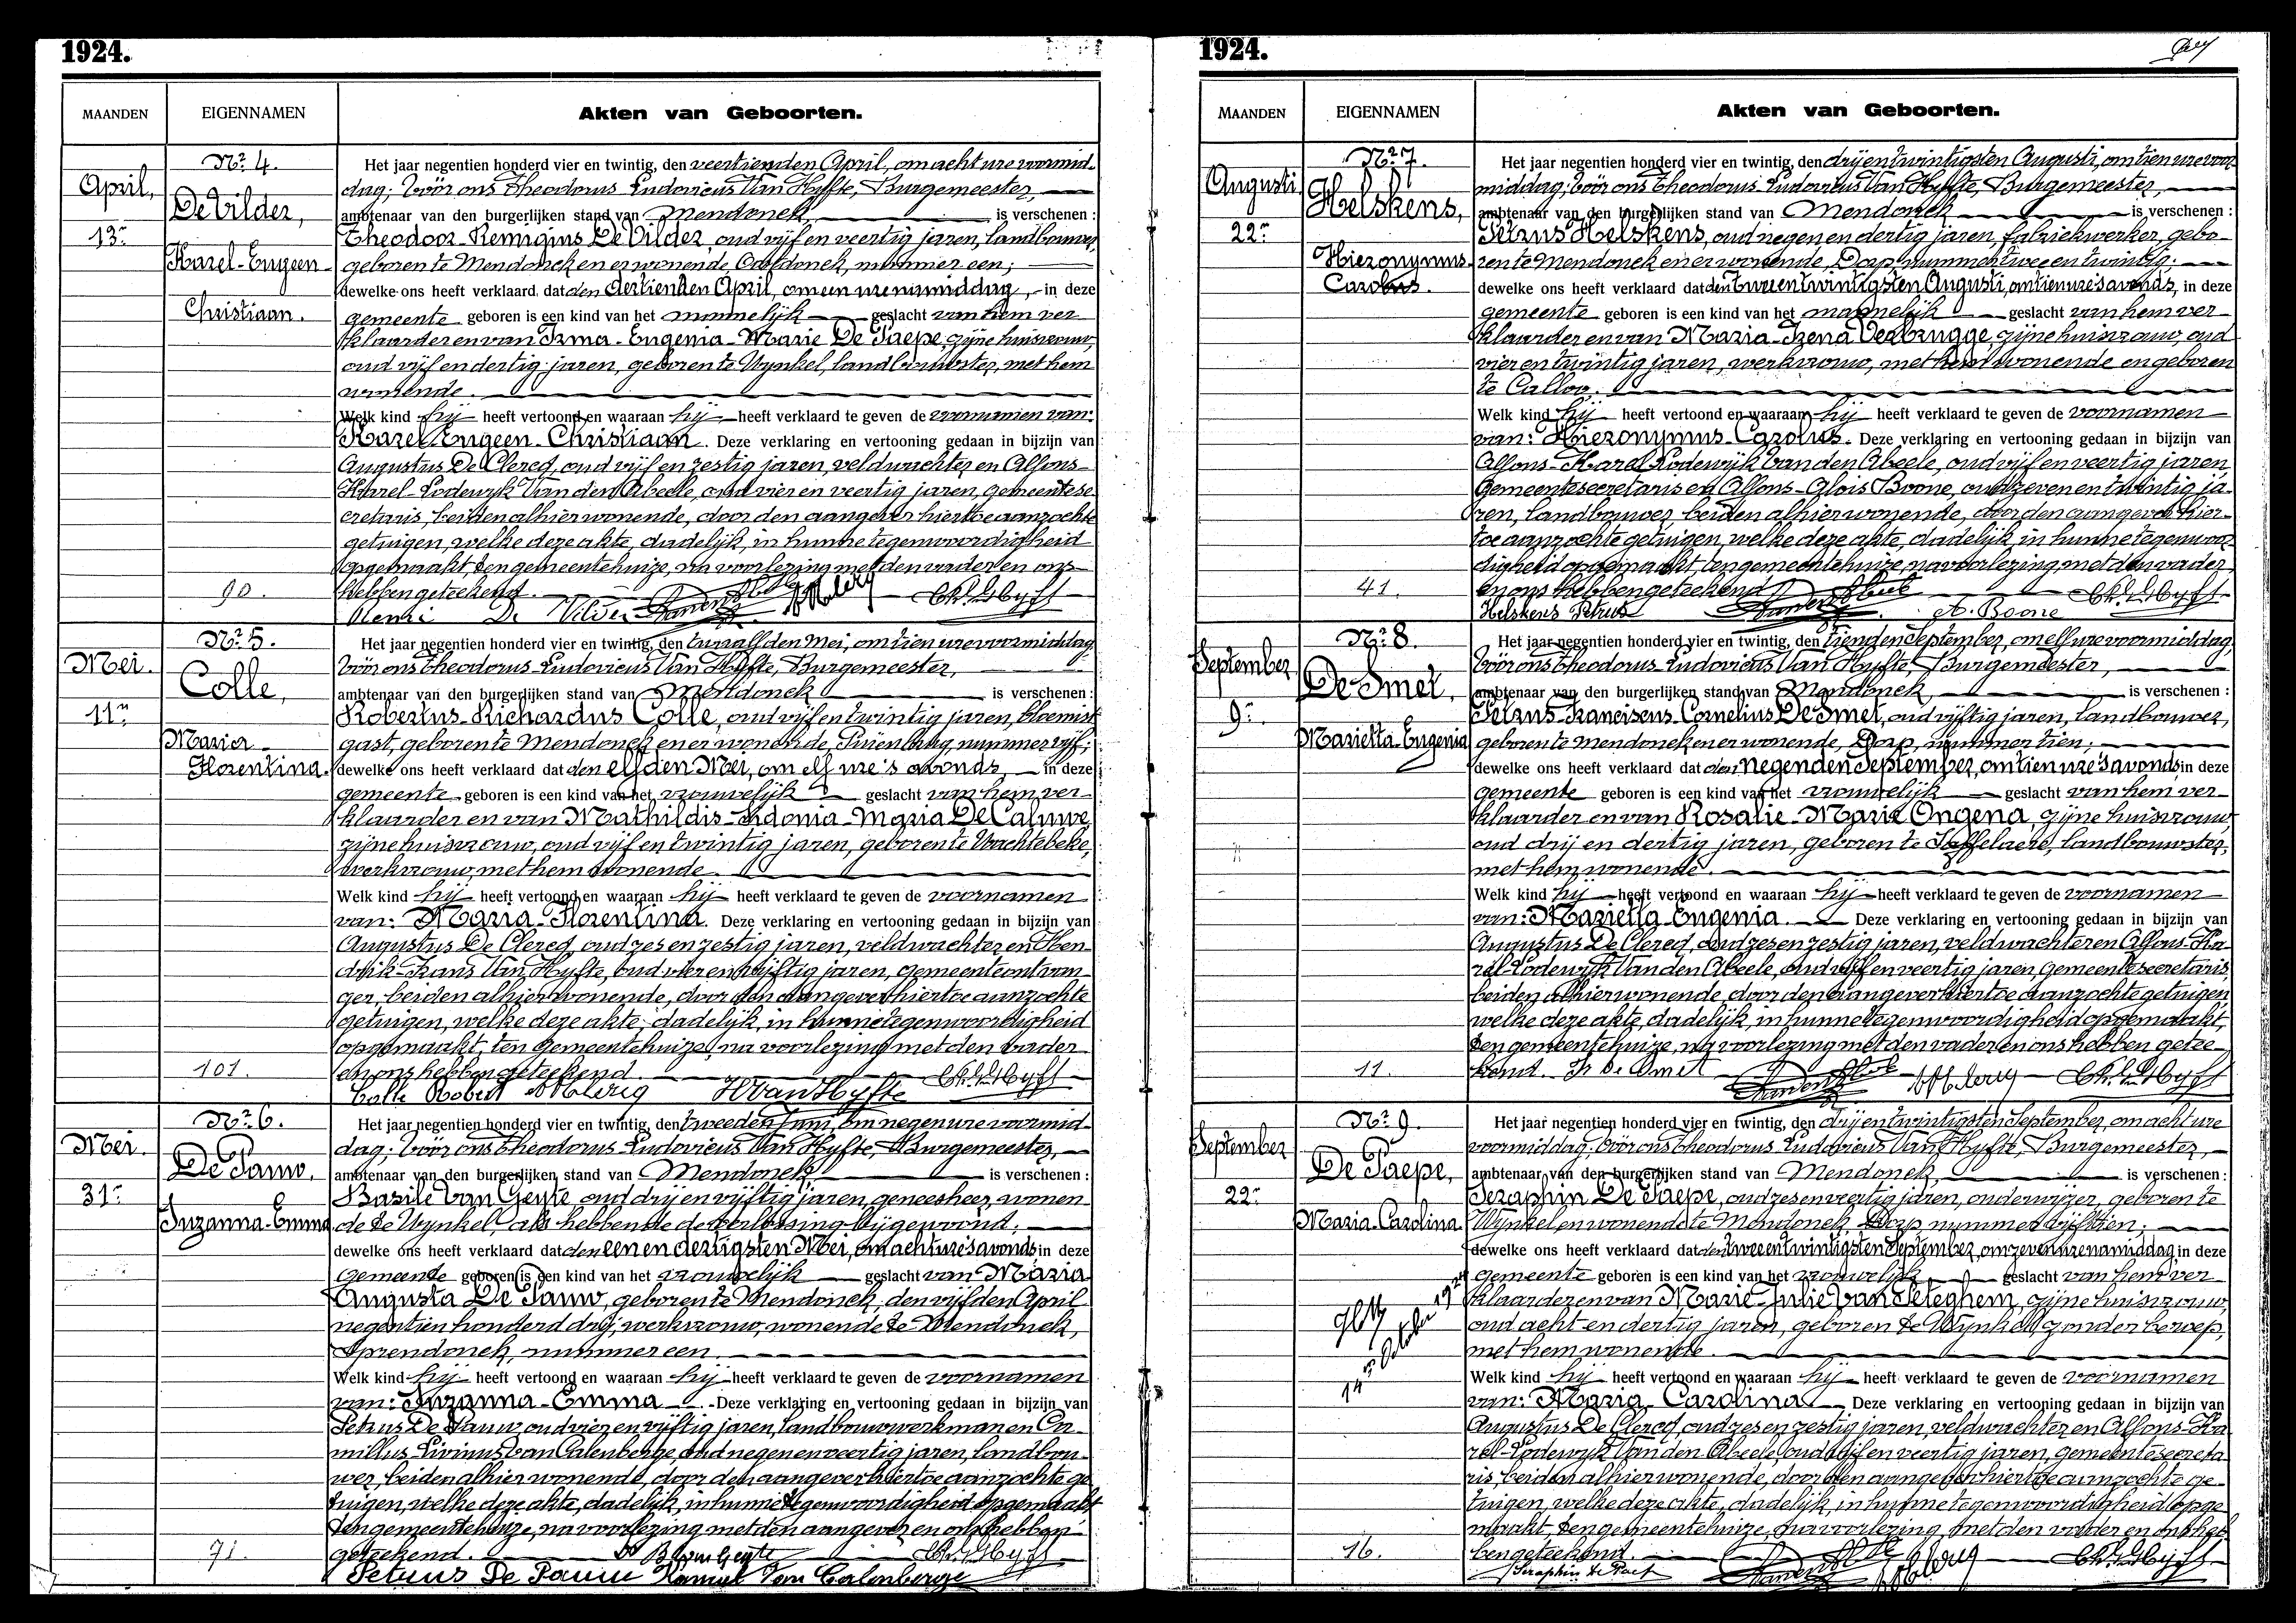 1924.
MAANDEN
EIGENNAMEN
Akten van Geboorten.
April,
13n
Nr 4.
De Vilder,
Karel-Eugeen-
Christiaan.
90.
Het jaar negentien honderd vier en twintig, den veertienden April, om acht ure voormid-
dag; vóór ons Theodorus Ludovicus Van Hyfte, Burgemeester,
ambtenaar van den burgerlijken stand van Mendonck, is verschenen:
Theodoor-Remigius De Vilder, oud vijf en veertig jaren, landbouwer,
geboren te Mendonck en er wonende, nummer een;
dewelke ons heeft verklaard dat den dertienden April, om een ure namiddag, in deze
gemeente geboren is een kind van het mannelijk geslacht van hem ver-
klaarder en van Irma-Eugenia-Marie De Paepe, zijne huisvrouw,
oud vijf en dertig jaren, geboren te Wynkel, landbouwster, met hem
wonende.
Welk kind hij heeft vertoond en waaraan hij heeft verklaard te geven de voornamen van:
Karel-Eugeen-Christiaan. Deze verklaring en vertooning gedaan in bijzijn van
Augustus De Clercq, oud vijf en zestig jaren, veldwachter en Alfons-
Karel-Lodewyk Van den Abeele, oud vier en veertig jaren, gemeentese-
cretaris, beiden alhier wonende, door den aangever hiertoe aanzochte
getuigen, welke deze akte, dadelijk, in hunne tegenwoordigheid
opgemaakt, ten gemeentehuize, na voorlezing met den vader en ons
hebben geteekend.
Henri De Vilder
Mei.
11n
Nr 5.
Colle,
Maria-
Florentina.
101.
Het jaar negentien honderd vier en twintig, den twaalfden Mei, om tien ure voormiddag,
vóór ons Theodorus Ludovicus Van Hyfte, Burgemeester,
ambtenaar van den burgerlijken stand van Mendonck is verschenen:
Robertus-Richardus Colle, oud vijf en twintig jaren, bloemist
gast, geboren te Mendonck en er wonende, nummer vijf;
dewelke ons heeft verklaard dat den elfden Mei, om elf ure 's avonds, in deze
gemeente geboren is een kind van het vrouwelijk geslacht van hem ver-
klaarder en van Mathildis-Sidonia-Maria De Caluwe,
zijne huisvrouw, oud vijf en twintig jaren, geboren te Wachtebeke,
werkvrouw, met hem wonende.
Welk kind hij heeft vertoond en waaraan hij heeft verklaard te geven de voornamen
van: Maria-Florentina. Deze verklaring en vertooning gedaan in bijzijn van
Augustus De Clercq, oud zes en zestig jaren, veldwachter en Hen-
drik-Frans Van Hyfte, oud vier en vijftig jaren, gemeenteontvan-
ger, beiden alhier wonende, door den aangever hiertoe aanzochte
getuigen, welke deze akte, dadelijk, in hunne tegenwoordigheid
opgemaakt, ten gemeentehuize, na voorlezing met den vader
en ons hebben geteekend.
Colle Robert H Van Hyfte
Mei.
31n
Nr 6.
De Pauw,
Suzanna-Emma
71.
Het jaar negentien honderd vier en twintig, den tweeden Juni, om negen ure voormid-
dag; vóór ons Theodorus Ludovicus Van Hyfte, Burgemeester,
ambtenaar van den burgerlijken stand van Mendonck is verschenen:
Basile Van Geyte, oud drij en vijftig jaren, geneesheer, wonen-
de te Wynkel, als hebbende de verlossing bijgewoond;
dewelke ons heeft verklaard dat den een en dertigsten Mei, om acht ure 's avonds in deze
gemeente geboren is een kind van het vrouwelijk geslacht van Maria
Augusta De Pauw, geboren te Mendonck, den vijfden April
negentien honderd drij, werkvrouw, wonende te Mendonck,
Sprendonck, nummer een.
Welk kind hij heeft vertoond en waaraan hij heeft verklaard te geven de voornamen
van: Suzanna-Emma. Deze verklaring en vertooning gedaan in bijzijn van
Petrus De Pauw, oud vier en vijftig jaren, landbouwwerkman en Ca-
millus-Livinus Van Calenberge, oud negen en veertig jaren, landbou-
wer, beiden alhier wonende, door den aangever hiertoe aanzochte ge-
tuigen, welke deze akte, dadelijk, in hunne tegenwoordigheid opgemaakt
ten gemeentehuize, na voorlezing met den aangever en ons hebben
geteekend. B Van Geyte
Petrus De Pauw Kamiel Van Calenberge
1924.
MAANDEN
EIGENNAMEN
Akten van Geboorten.
Augusti
22n
Nr 7.
Helskens,
Hieronymus-
Carolus.
41.
Het jaar negentien honderd vier en twintig, den drij en twintigsten Augusti, om tien ure voor-
middag; vóór ons Theodorus Ludovicus Van Hyfte, Burgemeester,
ambtenaar van den burgerlijken stand van Mendonck is verschenen:
Petrus Helskens, oud negen en dertig jaren, fabriekwerker, gebo-
ren te Mendonck en er wonende, Dorp, nummer twee en twintig;
dewelke ons heeft verklaard dat den twee en twintigsten Augusti, om tien ure 's avonds, in deze
gemeente geboren is een kind van het mannelijk geslacht van hem ver-
klaarder en van Maria-Irena Verbrugge, zijne huisvrouw, oud
vier en twintig jaren, werkvrouw, met hem wonende en geboren
te Calloo.
Welk kind hij heeft vertoond en waaraan hij heeft verklaard te geven de voornamen
van: Hieronymus-Carolus. Deze verklaring en vertooning gedaan in bijzijn van
Alfons-Karel Lodewijk Van den Abeele, oud vijf en veertig jaren,
gemeentesecretaris en Alfons-Alois Boone, oud zeven en twintig ja-
ren, landbouwer, beiden alhier wonende, door den aangever hier-
toe aanzochte getuigen, welke deze akte, dadelijk, in hunne tegenwoor-
digheid opgemaakt, ten gemeentehuize, na voorlezing met den vader
en ons hebben geteekend
Helskens Petrus A. Boone
September
9n
Nr 8.
De Smet,
Marietta-Eugenia
11.
Het jaar negentien honderd vier en twintig, den tienden September, om elf ure voormiddag,
vóór ons Theodorus Ludovicus Van Hyfte, Burgemeester,
ambtenaar van den burgerlijken stand van Mendonck is verschenen:
Petrus-Franciscus-Cornelius De Smet, oud vijftig jaren, landbouwer,
geboren te Mendonck en er wonende, Dorp, nummer tien;
dewelke ons heeft verklaard dat den negenden September, om tien ure 's avonds in deze
gemeente geboren is een kind van het vrouwelijk geslacht van hem ver-
klaarder en van Rosalie-Marie Ongena, zijne huisvrouw
oud drij en dertig jaren, geboren te Saffelaere, landbouwster,
met hem wonende.
Welk kind hij heeft vertoond en waaraan hij heeft verklaard te geven de voornamen
van: Marietta-Eugenia. Deze verklaring en vertooning gedaan in bijzijn van
Augustus De Clercq, oud zes en zestig jaren, veldwachter en Alfons-Ka-
rel-Lodewyk Van den Abeele, oud vijf en veertig jaren, gemeentesecretaris,
beiden alhier wonende door den aangever hiertoe aanzochte getuigen,
welke deze akte, dadelijk, in hunne tegenwoordigheid opgemaakt,
ten gemeentehuize, na voorlezing met den vader en ons hebben getee-
kend. Fr De Smet
September
22n
Nr 9.
De Paepe,
Maria-Carolina
14n October 1924
16.
Het jaar negentien honderd vier en twintig, den drij en twintigsten September, om acht ure
voormiddag; vóór ons Theodorus Ludovicus Van Hyfte, Burgemeester,
ambtenaar van den burgerlijken stand van Mendonck, is verschenen:
Seraphin De Paepe, oud zes en veertig jaren, onderwijzer, geboren te
Wynkel en wonende te Mendonck, Dorp, nummer vijftien;
dewelke ons heeft verklaard dat den twee en twintigsten September, om zeven ure namiddag, in deze
gemeente geboren is een kind van het vrouwelijk geslacht van hem ver-
klaarder en van Marie-Julie Van Peteghem, zijne huisvrouw,
oud acht en dertig jaren, geboren te Wynkel, zonder beroep,
met hem wonende.
Welk kind hij heeft vertoond en waaraan hij heeft verklaard te geven de voornamen
van: Maria Carolina. Deze verklaring en vertooning gedaan in bijzijn van
Augustus De Clercq, oud zes en zestig jaren, veldwachter en Alfons-Ka-
rel-Lodewyk Van den Abeele, oud vijf en veertig jaren, gemeentesecreta-
ris, beiden alhier wonende, door den aangever hiertoe aanzochte ge-
tuigen, welke deze akte, dadelijk, in hunne tegenwoordigheid opge-
maakt, ten gemeentehuize, na voorlezing, met den vader en ons heb-
ben geteekend.